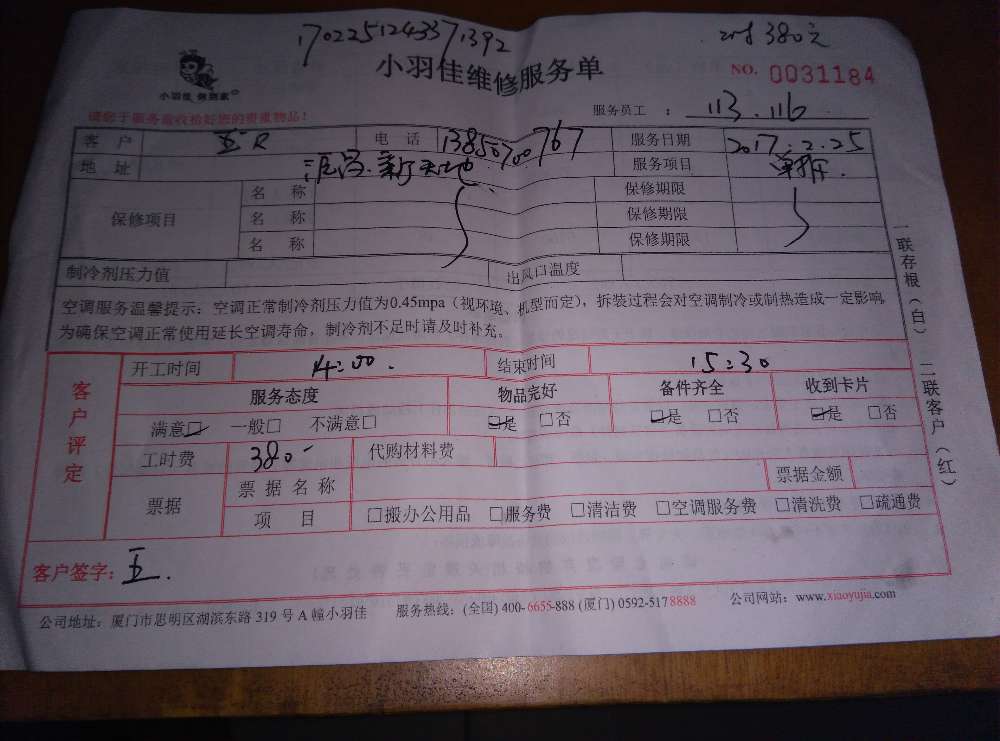 1702251243371392
380元
小羽佳维修服务单
NO. 0031184
小羽佳 做到家
请您于服务前收拾好您的贵重物品!
服务员工: 113.116
客户 电话 服务日期 2017.2.25
地址 新天地 服务项目 单拆.
保修项目 名称 保修期限
名称 保修期限
名称 保修期限
制冷剂压力值 出风口温度
空调服务温馨提示:空调正常制冷剂压力值为0.45mpa(视环境、机型而定),拆装过程会对空调制冷或制热造成一定影响
为确保空调正常使用延长空调寿命,制冷剂不足时请及时补充。
一联存根(白) 二联客户(红)
客户评定
开工时间 14:00. 结束时间 15:30
服务态度 物品完好 备件齐全 收到卡片
满意☑ 一般□ 不满意□ ☑是 □否 ☑是 □否 ☑是 □否
工时费 380- 代购材料费
票据 票据名称 票据金额
项目 □搬办公用品 □服务费 □清洁费 □空调服务费 □清洗费 □疏通费
客户签字:
公司地址:厦门市思明区湖滨东路 319 号 A 幢小羽佳 服务热线:(全国) 400-6655-888 (厦门) 0592-5178888 公司网站:www.xiaoyujia.com